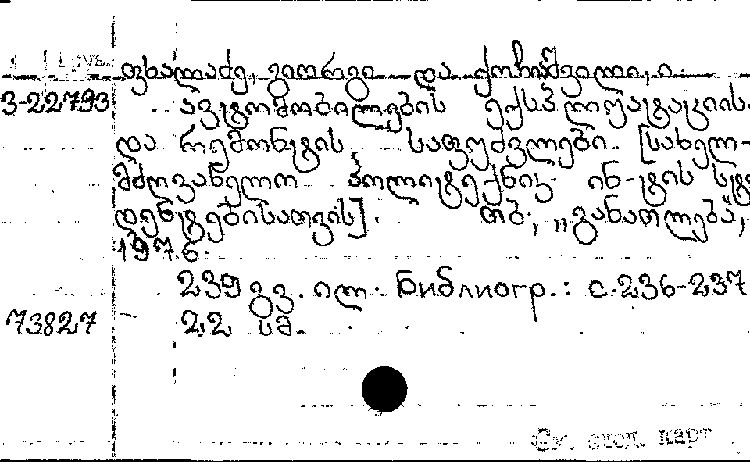 ფხალაძე, გიორგი და ქოჩიაშვილი, ი.
3-22793 ავტომობილების ექსპლოატაციის
და რემონტის საფუძვლები. [სახელ-
მძღვანელო პოლიტექნიკ. ინ-ტის სტუ
დენტებისათვის]. თბ., „განათლება",
1976.
239 გვ. ილ. Библиогр.: с. 236-237
73827 22 სმ.
См. осн. карт